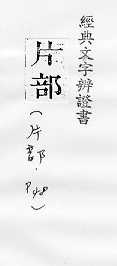 經典文字辨證書
片部
(片部.P48)